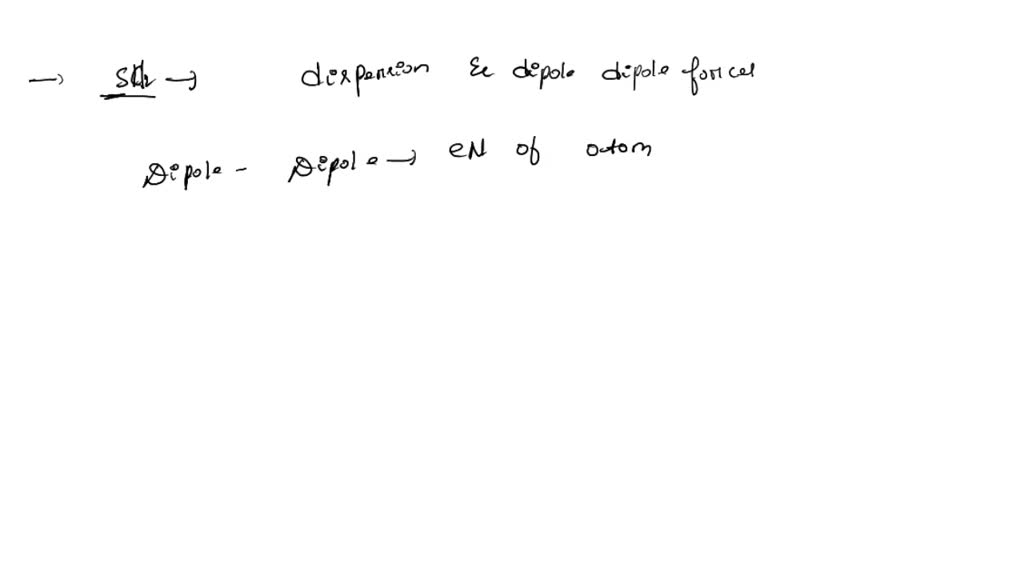 → SCl2 → dispersion & dipole dipole forces
Dipole - Dipole → eN of atom